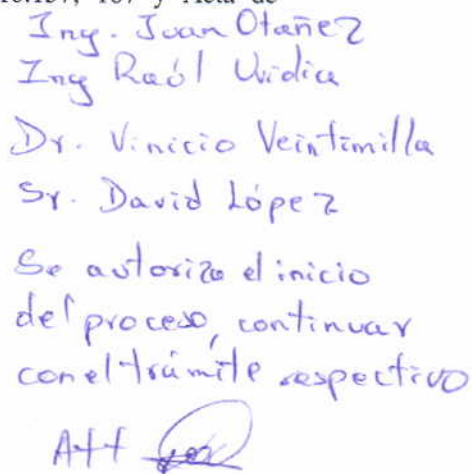 187 y Acta de
Ing. Juan Otañez
Ing Raúl Uvidia
Dr. Vinicio Veintimilla
Sr. David López
Se autoriza el inicio
del proceso, continuar
con el trámite respectivo
Att